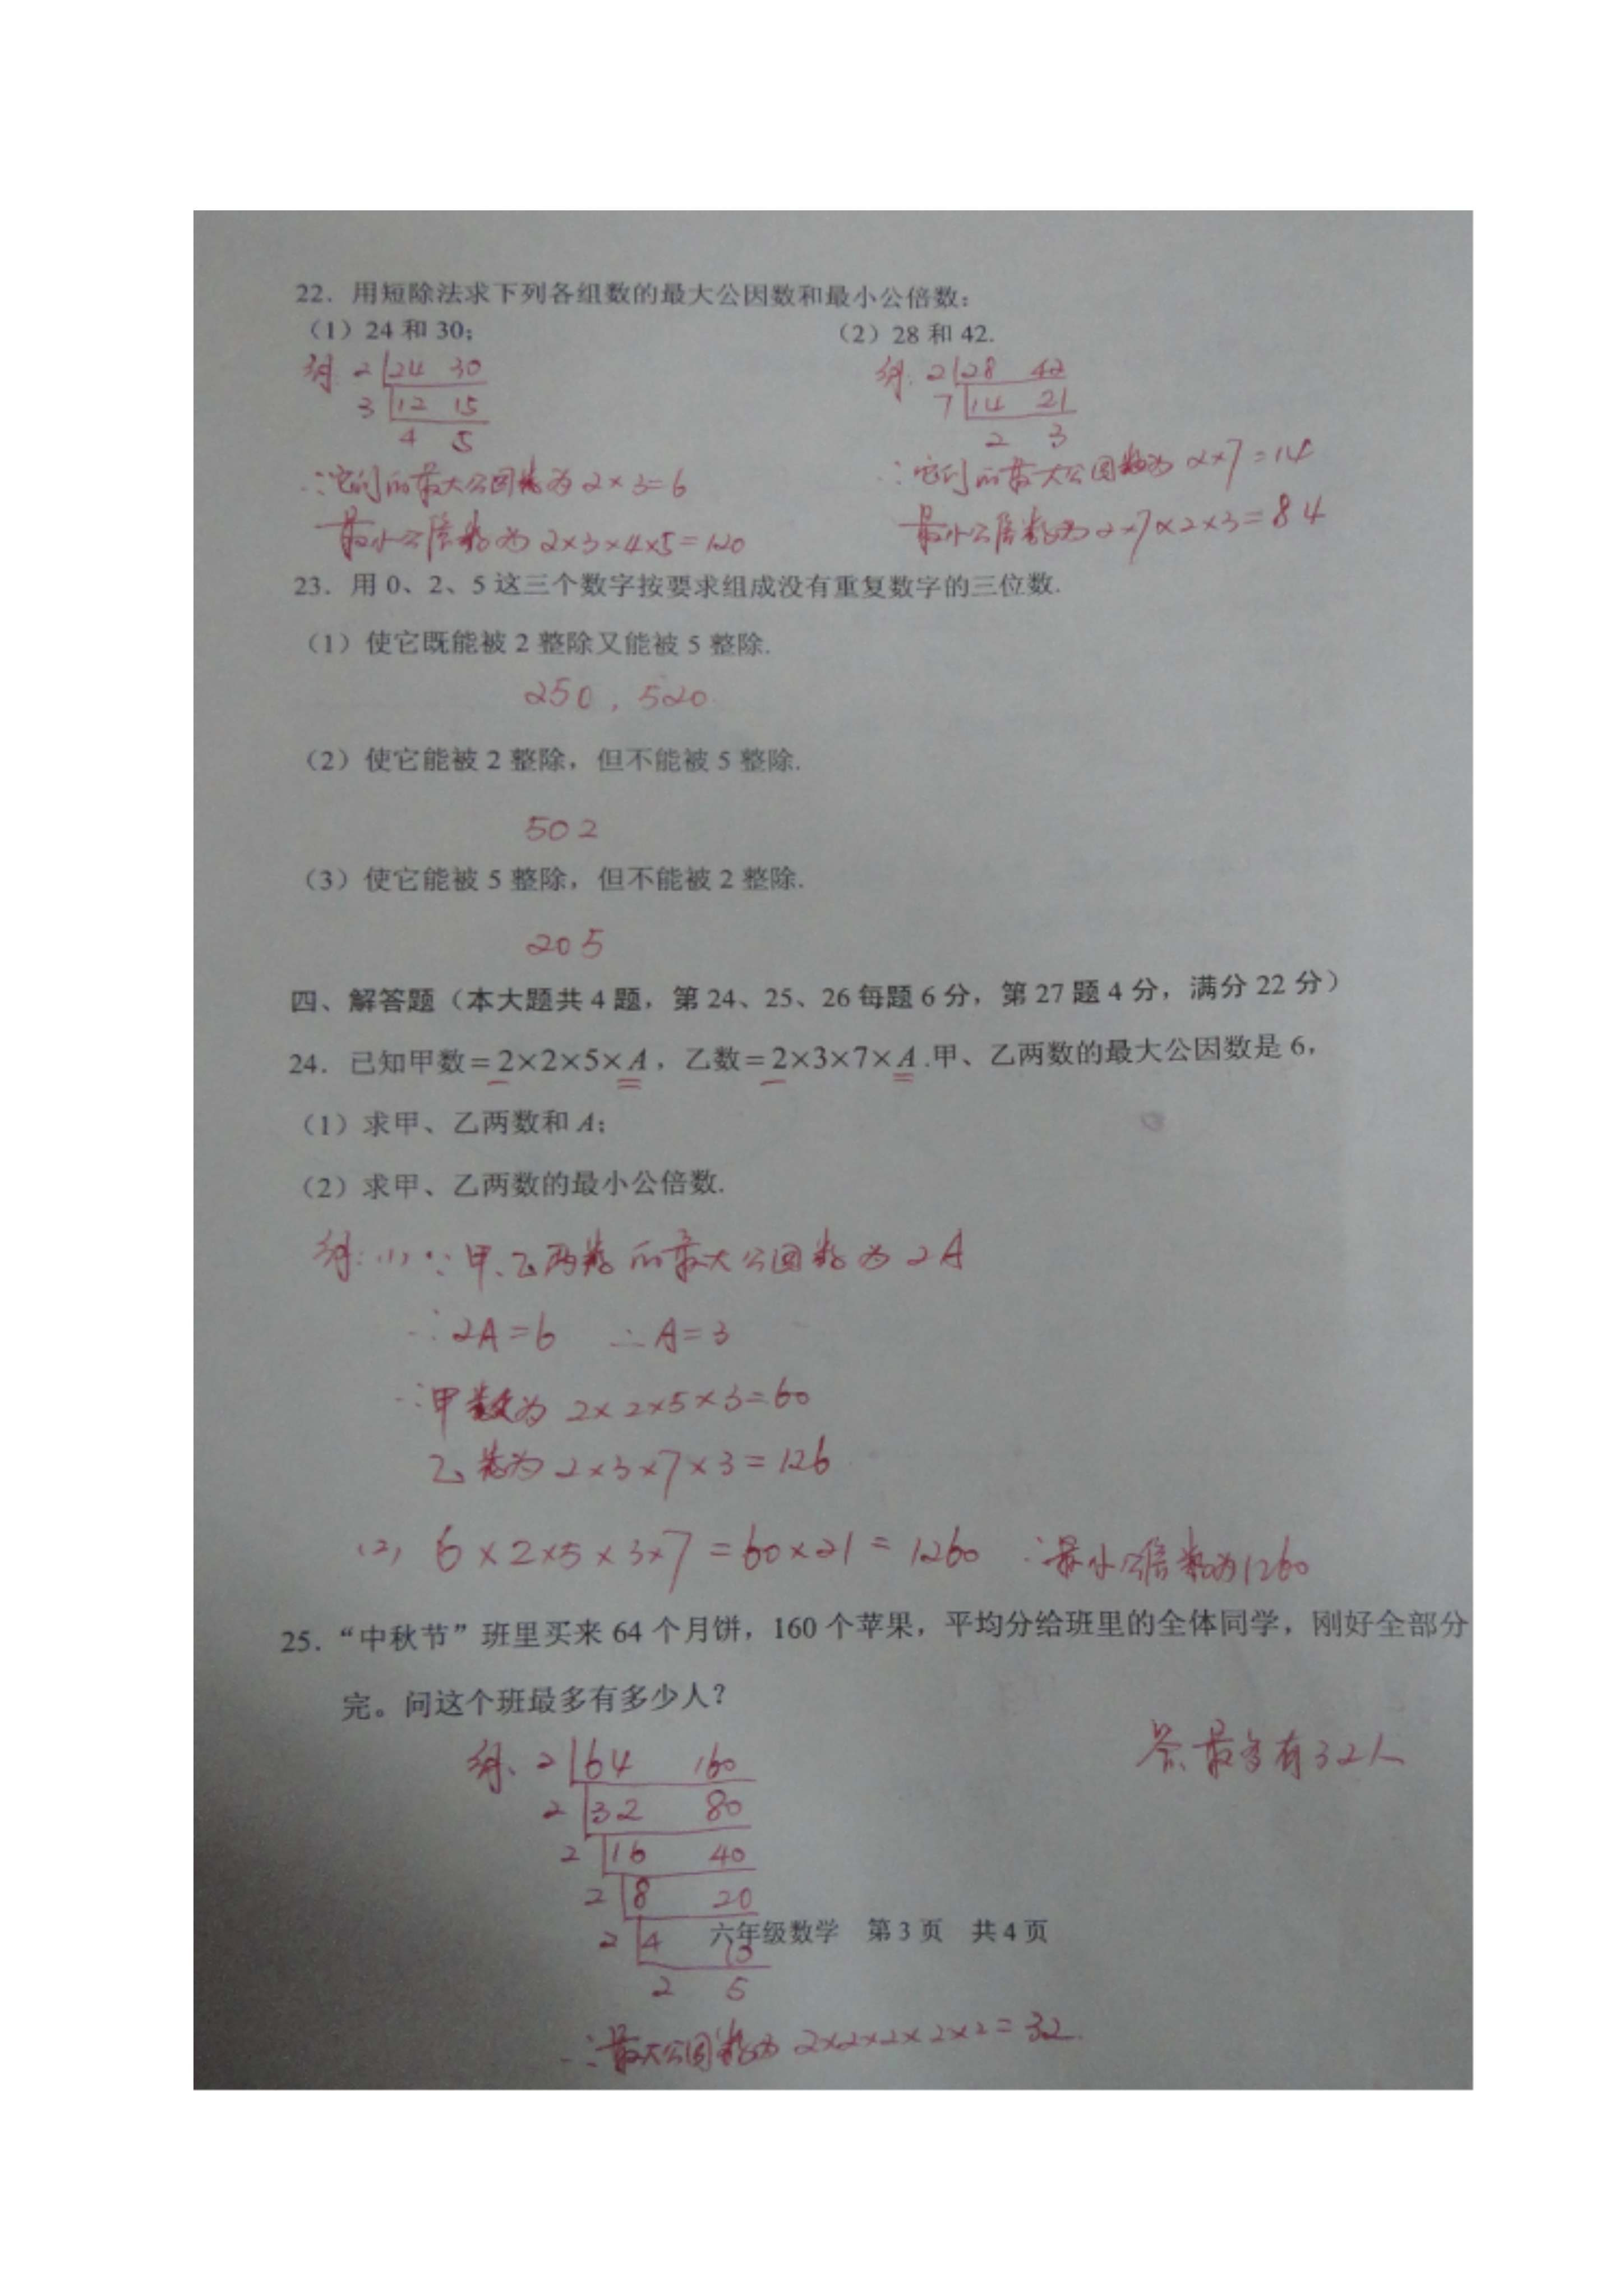 22. 用短除法求下列各组数的最大公因数和最小公倍数:
(1) 24 和 30; (2) 28 和 42.
解: 2 24 30
3 12 15
4 5
∴它们的最大公因数为 2×3=6
最小公倍数为 2×3×4×5=120
解: 2 28 42
7 14 21
2 3
∴它们的最大公因数为 2×7=14
最小公倍数为 2×7×2×3=84
23. 用 0、2、5 这三个数字按要求组成没有重复数字的三位数.
(1) 使它既能被 2 整除又能被 5 整除.
250, 520.
(2) 使它能被 2 整除, 但不能被 5 整除.
502
(3) 使它能被 5 整除, 但不能被 2 整除.
205
四、解答题(本大题共 4 题, 第 24、25、26 每题 6 分, 第 27 题 4 分, 满分 22 分)
24. 已知甲数=2×2×5×A, 乙数=2×3×7×A.甲、乙两数的最大公因数是 6,
(1) 求甲、乙两数和 A;
(2) 求甲、乙两数的最小公倍数.
解:(1) ∵甲、乙两数的最大公因数为 2A
∴2A=6 ∴A=3
∴甲数为 2×2×5×3=60
乙数为 2×3×7×3=126
(2) 6×2×5×3×7=60×21=1260 ∴最小公倍数为1260
25. “中秋节”班里买来 64 个月饼, 160 个苹果, 平均分给班里的全体同学, 刚好全部分
完。问这个班最多有多少人?
解: 2 64 160
2 32 80
2 16 40
2 8 20
2 4 10
2 5
∴最大公因数为 2×2×2×2×2=32.
答:最多有32人
六年级数学 第 3 页 共 4 页